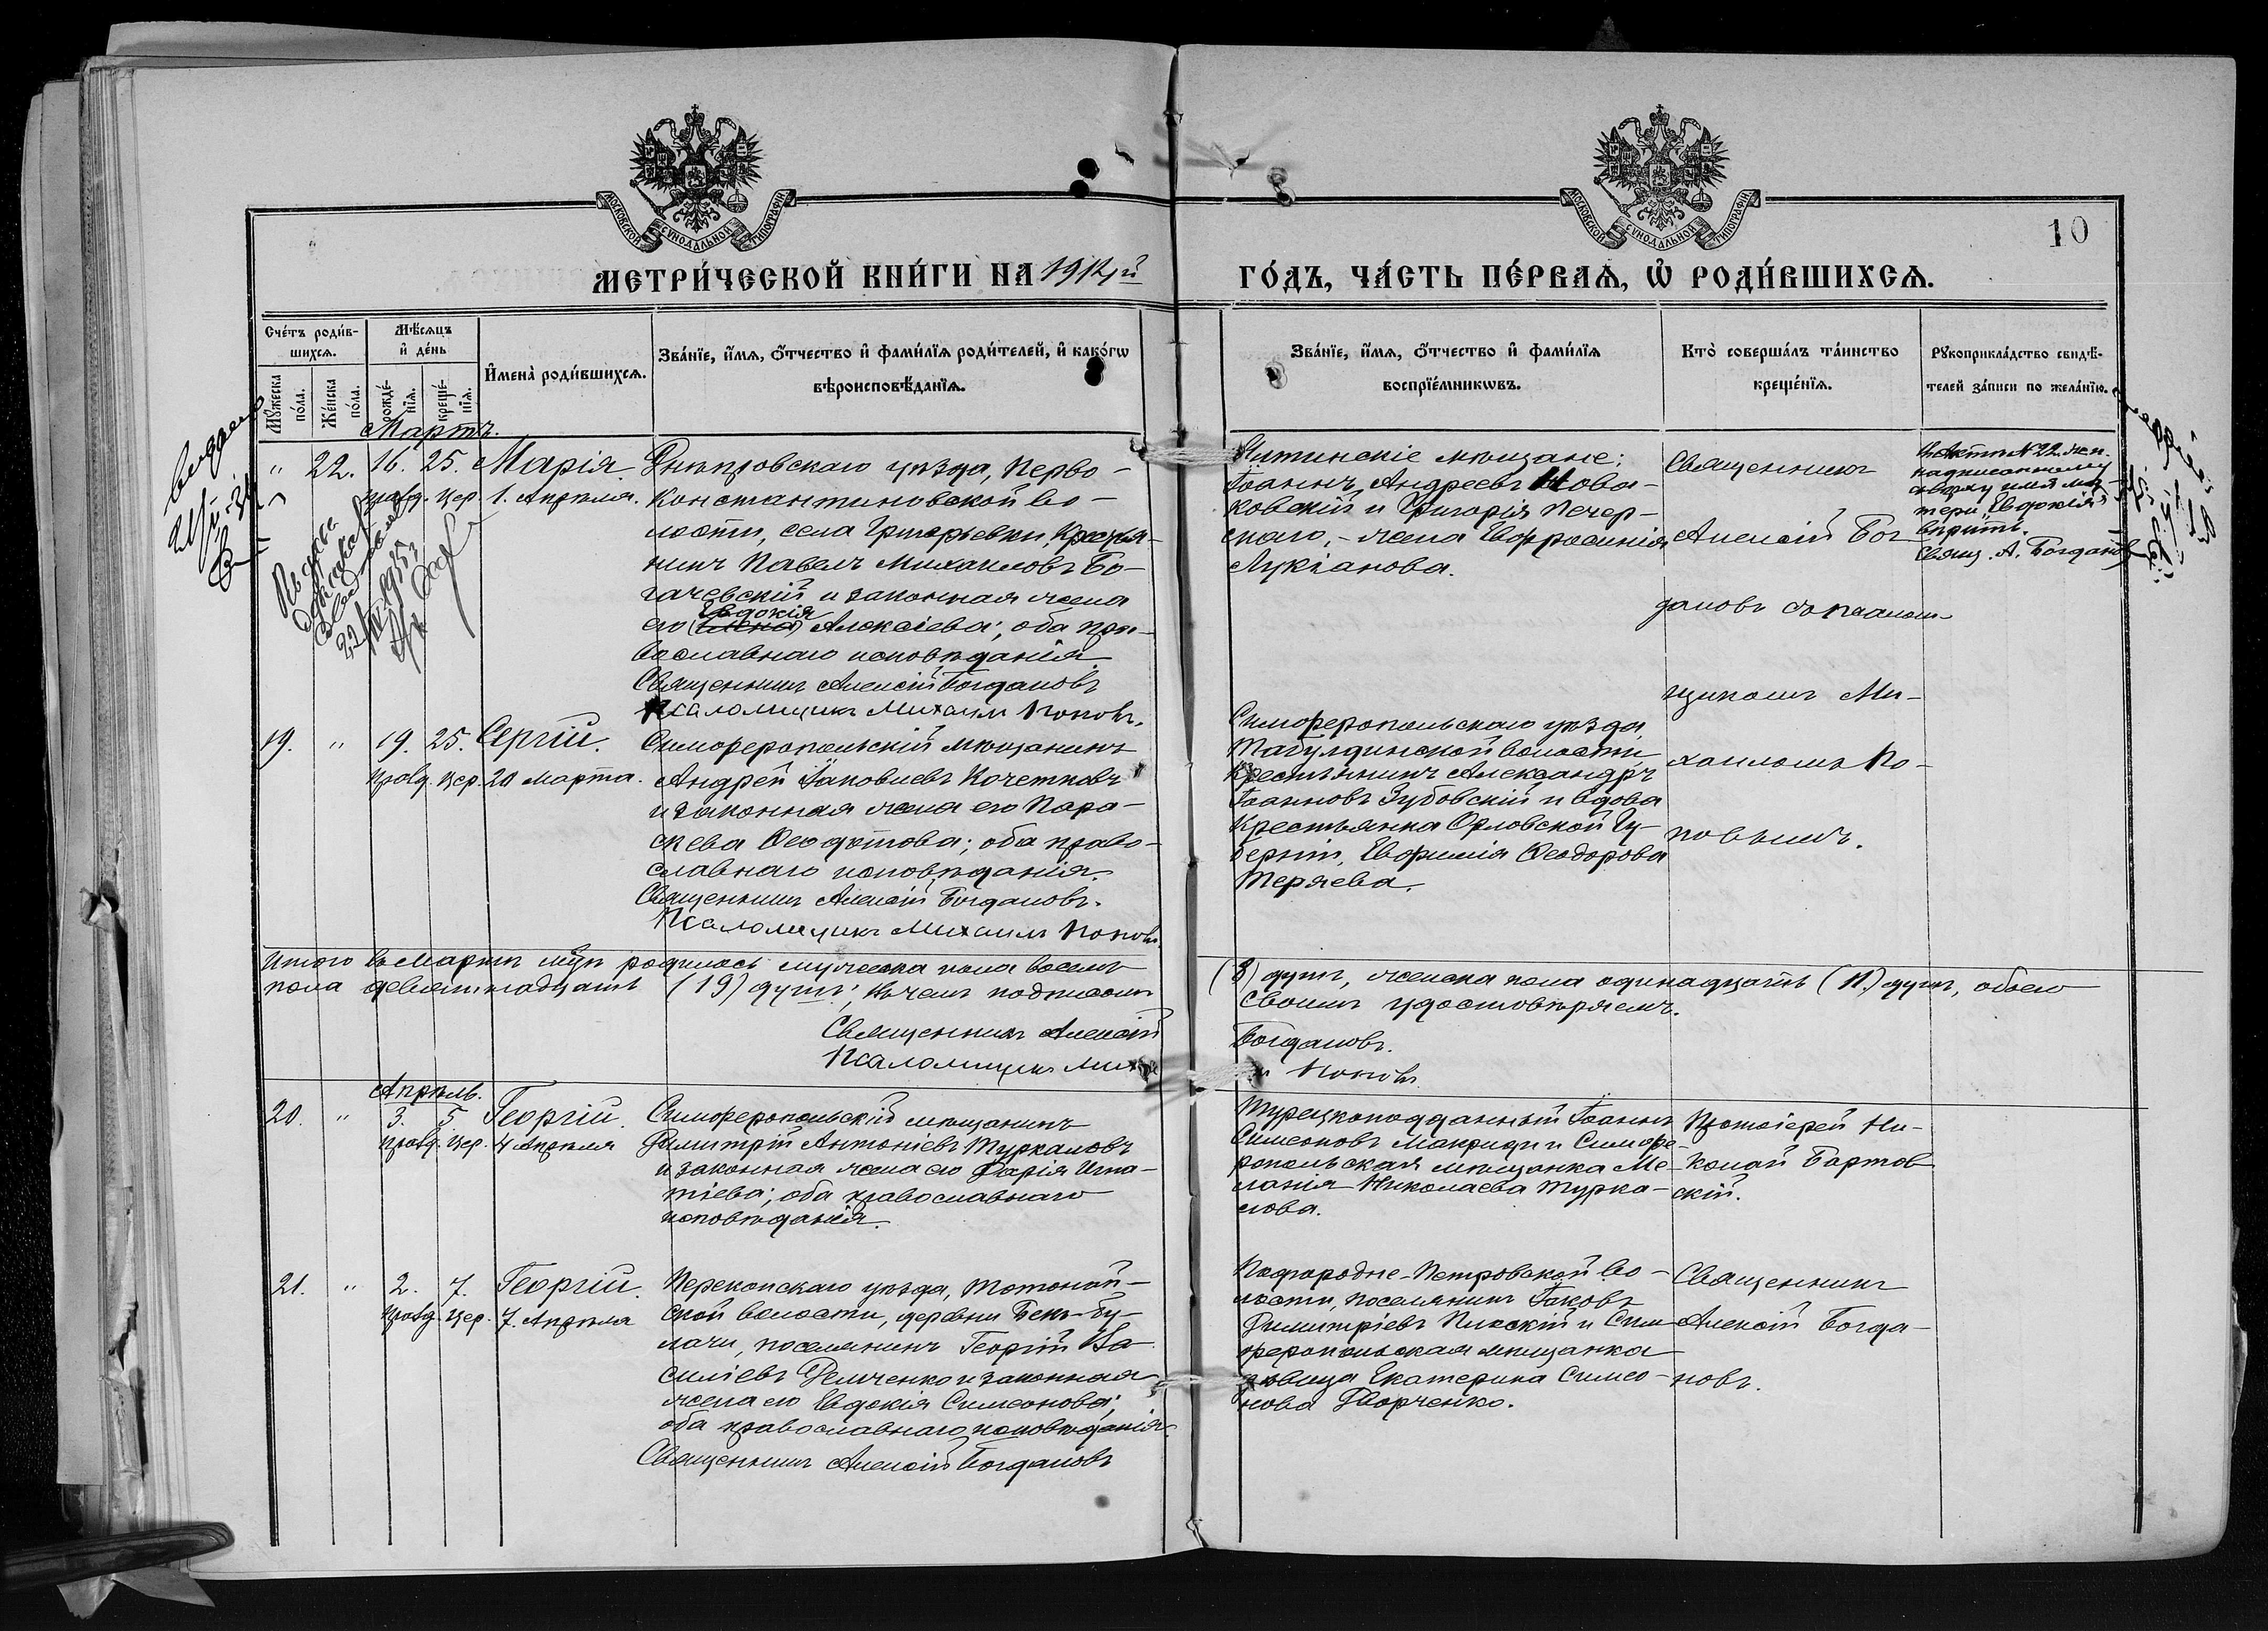 МОСКОВСКОЙ СѴНОДАЛЬНОЙ ТИПОГРАФІИ.
МОСКОВСКОЙ СѴНОДАЛЬНОЙ ТИПОГРАФІИ.
10
МЕТРИ́ЧЕСКОЙ КНИ́ГИ НА 1912й
ГО́ДЪ, ЧА́СТЬ ПЕ́РВАѦ, Ѽ РОДИ́ВШИХСѦ.
Сче́тъ роди́в-
шихсѧ.
Мꙋ́жеска по́ла.
Же́нска по́ла.
Мѣ́сѧцъ
и҆ де́нь
рожде́-
нїѧ.
креще́-
нїѧ.
И҆мена̀ роди́вшихсѧ.
Зва́нїе, и҆́мѧ, ѻ҆́тчество и҆ фами́лїѧ роди́телей, и҆ како́гѡ
вѣроисповѣ́данїѧ.
Зва́нїе, и҆́мѧ, ѻ҆́тчество и҆ фами́лїѧ
воспрїе́мникѡвъ.
Кто̀ соверша́лъ та́инство
креще́нїѧ.
Рꙋкоприкла́дство свидѣ́-
телей за́писи по жела́нїю.
Мартъ.
" 22. 16. 25. Марія
правд. цер. 1. Апрѣля.
Днѣпровскаго уѣзда, Перво-
константиновской во-
лости, села Григорьевки, крестья-
нинъ Павелъ Михаиловъ Бо-
гачевскій и законная жена
Евдокія
его (Елена) Алексіева; оба пра-
вославнаго исповѣданія.
Священникъ Алексій Богдановъ
Псаломщикъ Михаилъ Поповъ.
мѣщане:
Іоаннъ Андреевъ Нова-
ковскій и Григорія Печер-
скаго,- жена Евфросинія
Лукіанова.
Священникъ
Алексій Бог-
дановъ съ псалом-
щикомъ Ми-
хаиломъ По-
повымъ.
Въ актѣ № 22
надписанному
сверху имя ма-
тери "Евдокія"
вѣрить.
Свящ. А. Богдановъ
19. " 19. 25. Сергій.
правд. цер. 20 марта.
Симферопольскій мѣщанинъ
Андрей Іаковлевъ Кочетковъ
и законная жена его Пара-
скева Ѳеодотова; оба право-
славнаго исповѣданія.
Священникъ Алексій Богдановъ.
Псаломщикъ Михаилъ Поповъ.
Симферопольскаго уѣзда,
Табулдинской волости,
крестьянинъ Александръ
Іоанновъ Зубовскій и вдова
крестьянка Орловской гу-
берніи, Евфимія Ѳеодорова
Теряева.
Итого въ Мартѣ мцѣ родилось мужеска пола восемь (8) душъ, женска пола одинадцать (11) душъ, обоего
пола девятнадцать (19) душъ; въ чемъ подписомъ своимъ удостовѣряемъ.
Священникъ Алексій Богдановъ.
Псаломщикъ Поповъ
Апрѣль.
20. " 3. 5. Георгій.
правд. цер. 4 Апрѣля
Симферопольскій мѣщанинъ
Димитрій Антоніевъ Туркаловъ
и законная жена его Дарія Игна-
тіева; оба православнаго
исповѣданія.
Турецкоподданный Іоаннъ
Симеоновъ Макриди и Симфе-
ропольская мѣщанка Ме-
ланія Николаева Турка-
лова.
Протоіерей Ни-
колай Бортов-
скій.
21. " 2. 7. Георгій.
правд. цер. 7. Апрѣля
Перекопскаго уѣзда, Тотонай-
ской волости, деревни Бекъ-Бу-
лачи, поселянинъ Георгій Ва-
силіевъ Демченко и законная
жена его Евдокія Симеонова;
оба православнаго исповѣданія.
Священникъ Алексій Богдановъ
Подгородне-Петровской во-
лости, поселянинъ Іаковъ
Димитріевъ и Сим-
феропольская мѣщанка
дѣвица Екатерина Симео-
нова Дворченко.
Священникъ
Алексій Богда-
новъ.